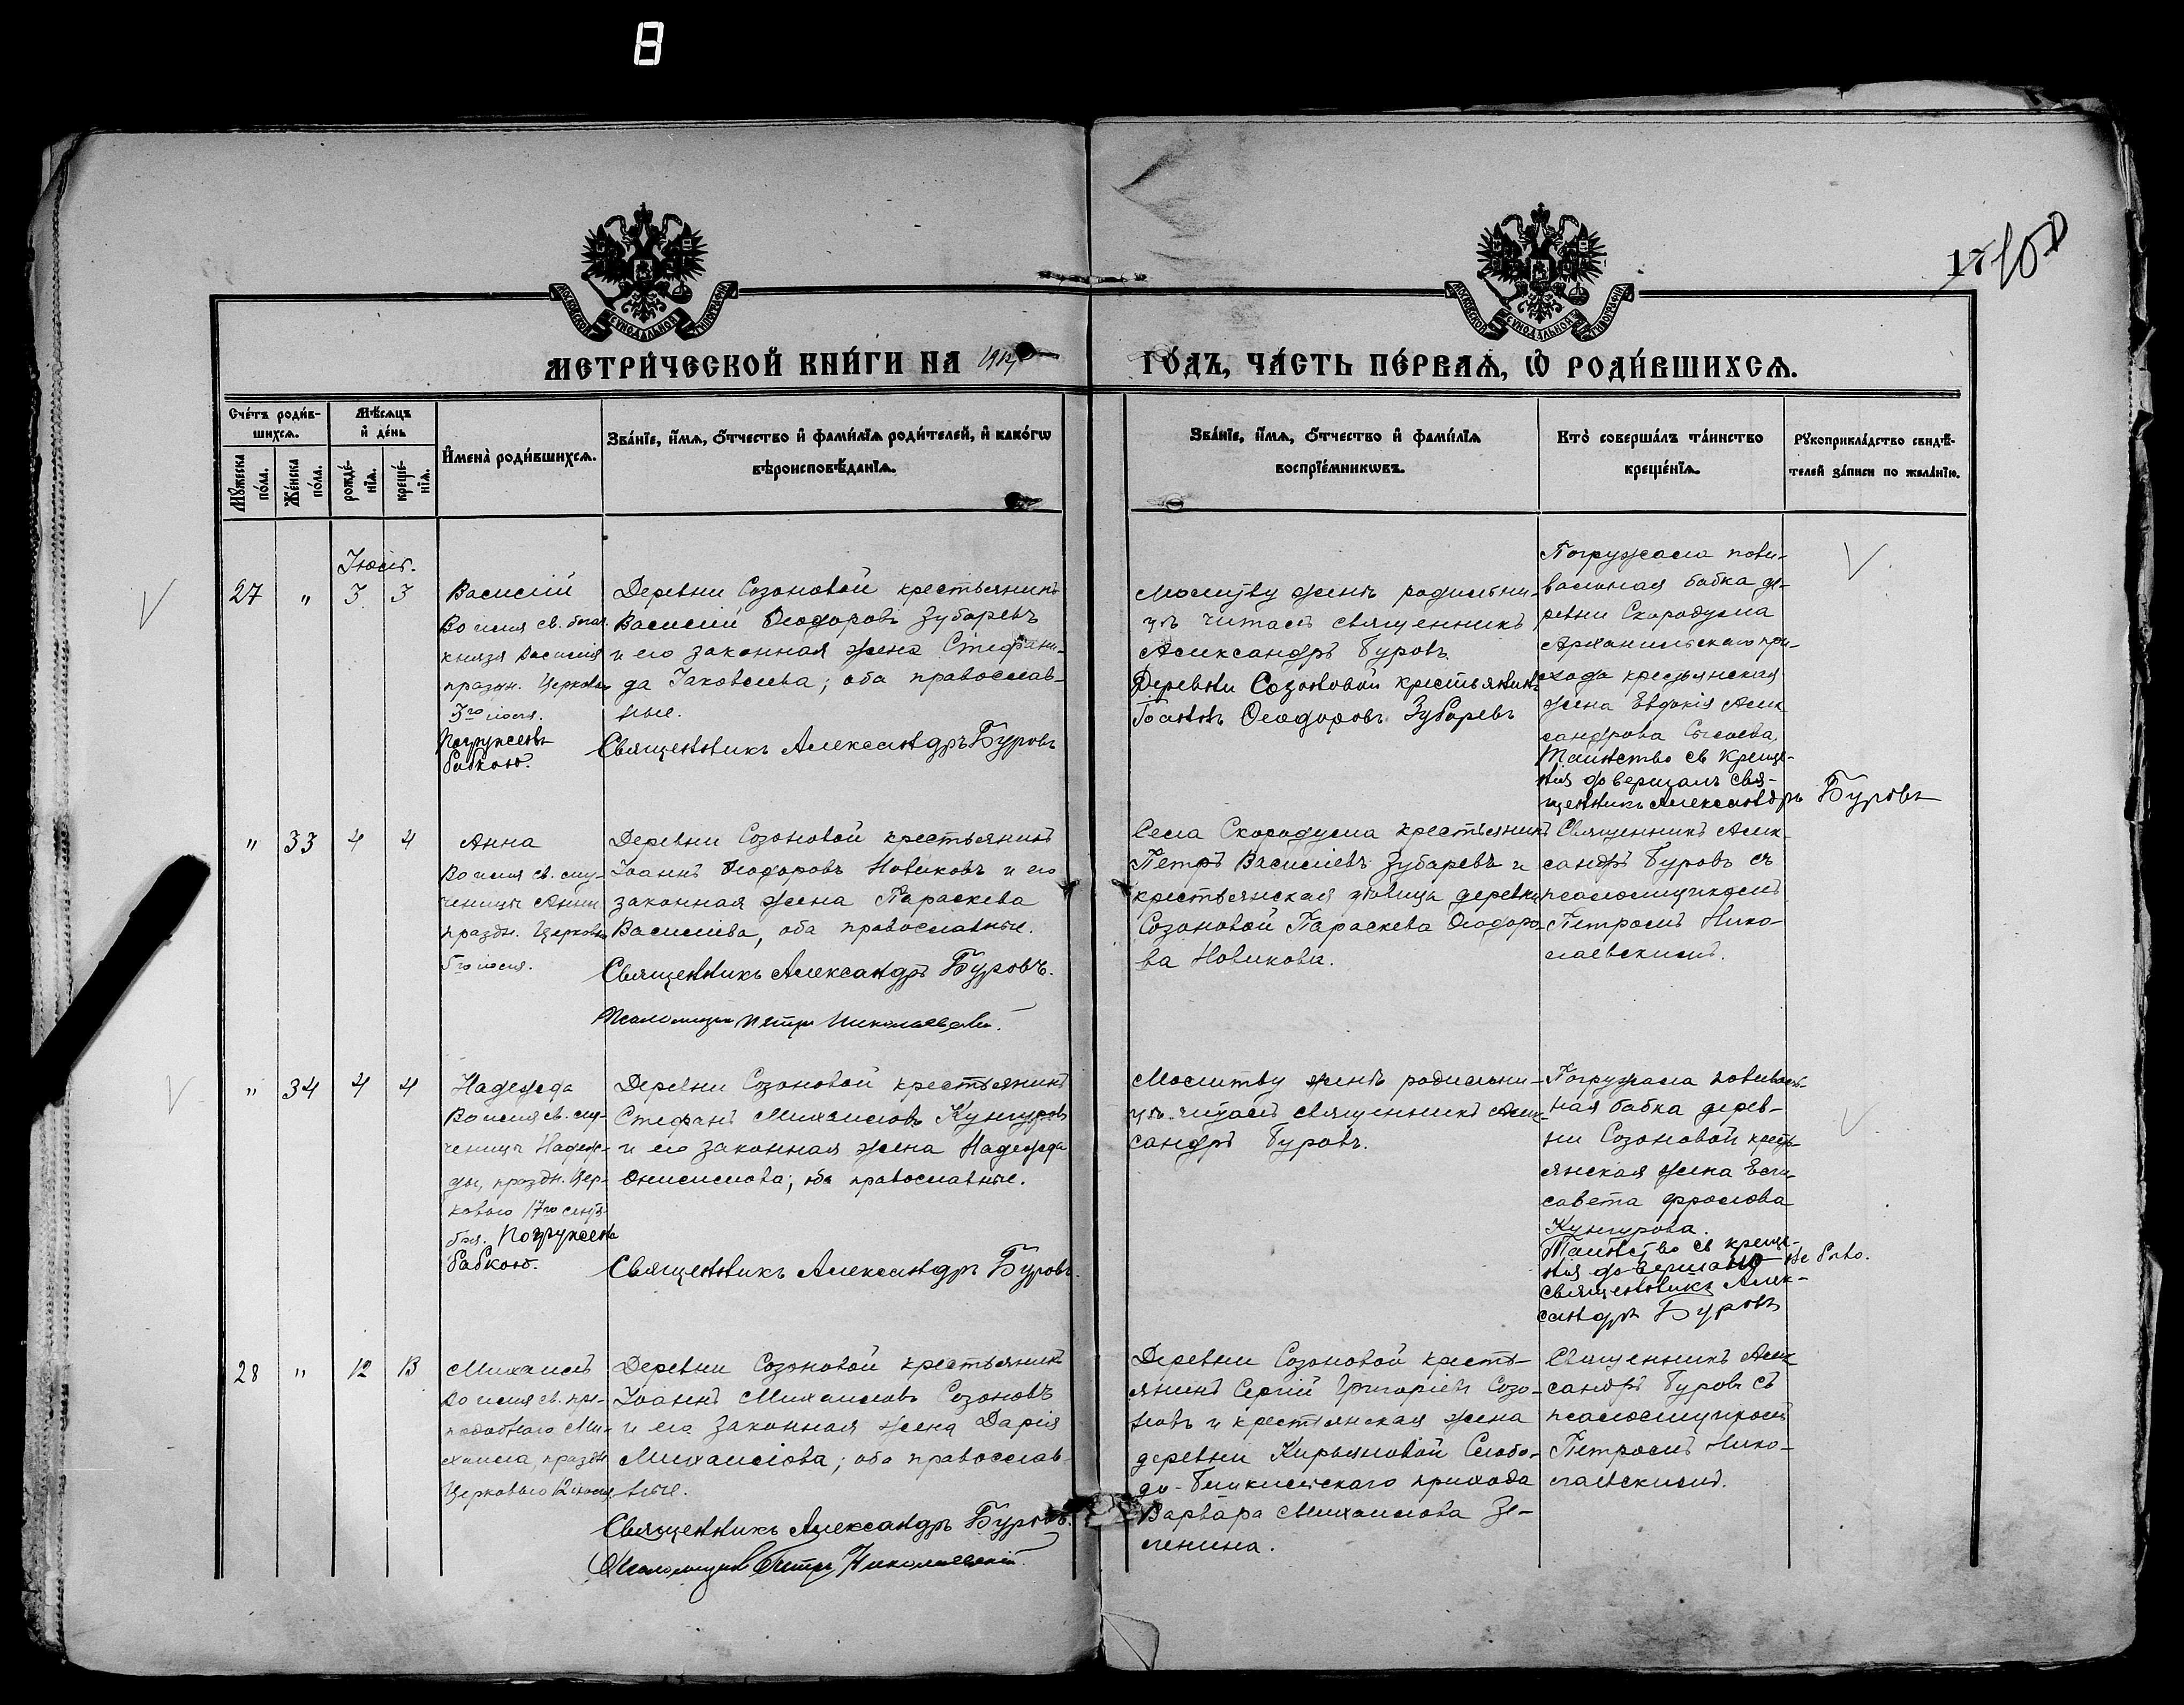 8
17 100
МОСКОВСКОЙ СѴНОДАЛЬНОЙ ТИПОГРАФІИ
МОСКОВСКОЙ СѴНОДАЛЬНОЙ ТИПОГРАФІИ
МЕТРИ́ЧЕСКОЙ КНИ́ГИ НА ГО́ДЪ, ЧА́СТЬ ПЕ́РВАѦ, Ѡ҆ РОДИ́ВШИХСѦ.
Сче́тъ роди́в-
шихсѧ.
Мѣ́сѧцъ
и҆ де́нь
Мꙋ́жеска
по́ла.
Же́нска
по́ла.
рожде́-
нїѧ.
креще́-
нїѧ.
И҆мена̀ роди́вшихсѧ.
Зва́нїе, и҆́мѧ, ѻ҆́тчество и҆ фами́лїѧ роди́телей, и҆ како́гѡ
вѣроисповѣ́данїѧ.
Зва́нїе, и҆́мѧ, ѻ҆́тчество и҆ фами́лїѧ
воспрїе́мникѡвъ.
Кто̀ соверша́лъ та́инство
креще́нїѧ.
Рꙋкоприкла́дство свидѣ́-
телей за́писи по жела́нїю.
Іюль.
27 " 3 3
Василій
Во имя св. благ.
князя Василія
праздн. Церковью
3го іюля.
Погруженъ
бабкою.
Деревни Созоновой крестьянинъ
Василій Ѳеодоровъ Зубаревъ
и его законная жена Стефани-
да Іаковлева; оба православ-
ные.
Священникъ Александръ Буровъ
Молитву женѣ родильни-
цѣ читалъ священникъ
Александръ Буровъ.
Деревни Созоновой крестьянинъ
Іоаннъ Ѳеодоровъ Зубаревъ
Погружала пови-
вальная бабка де-
ревни Скородума
Архангельскаго при-
хода крестьянская
жена Евдокія Алек
сандрова Сысоева,
Таинство св Креще-
нія довершалъ свя-
щенникъ Александръ Буровъ
" 33 4 4
Анна
Во имя св. му-
ченицы Анны
праздн. Церковью
5го іюля.
Деревни Созоновой крестьянинъ
Іоаннъ Ѳеодоровъ Новиковъ и его
законная жена Параскева
Василіева, оба православные.
Священникъ Александръ Буровъ.
Псаломщикъ Петръ Николаевскій.
Села Скородума крестьянинъ
Петръ Василіевъ Зубаревъ и
крестьянская дѣвица деревни
Созоновой Параскева Ѳеодоро-
ва Новикова.
Священникъ Алек-
сандръ Буровъ съ
псаломщикомъ
Петромъ Нико-
лаевскимъ.
" 34 4 4
Надежда
Во имя св. му-
ченицы Надеж-
ды, праздн. Цер-
ковью 17го сентя-
бря. Погружена
бабкою.
Деревни Созоновой крестьянинъ
Стефанъ Михаиловъ Кунгуровъ
и его законная жена Надежда
Онисимова; оба православные.
Священникъ Александръ Буровъ.
Молитву женѣ родильни-
цѣ читалъ священникъ Алек-
сандръ Буровъ.
Погружала повиваль-
ная бабка дерев-
ни Созоновой кресть-
янская жена Ели-
савета Фролова
Кунгурова.
Таинство св креще-
нія довершано не было.
священникъ Алек-
сандръ Буровъ
28 " 12 13
Михаилъ
Во имя св. пре-
подобнаго Ми-
хаила, праздн
Церковью 12 іюля.
Деревни Созоновой крестьянинъ
Іоаннъ Михаиловъ Созоновъ
и его законная жена Дарія
Михаилова; оба православ-
ные.
Священникъ Александръ Буровъ.
Псаломщикъ Петръ Николаевскій.
Деревни Созоновой кресть-
янинъ Сергій Григоріевъ Созо-
новъ и крестьянская жена
деревни Кирьяновой Слобо-
до-Бешкильскаго прихода
Варвара Михаилова Зе-
ленина.
Священникъ Алек
сандръ Буровъ съ
псаломщикомъ
Петромъ Нико-
лаевскимъ.